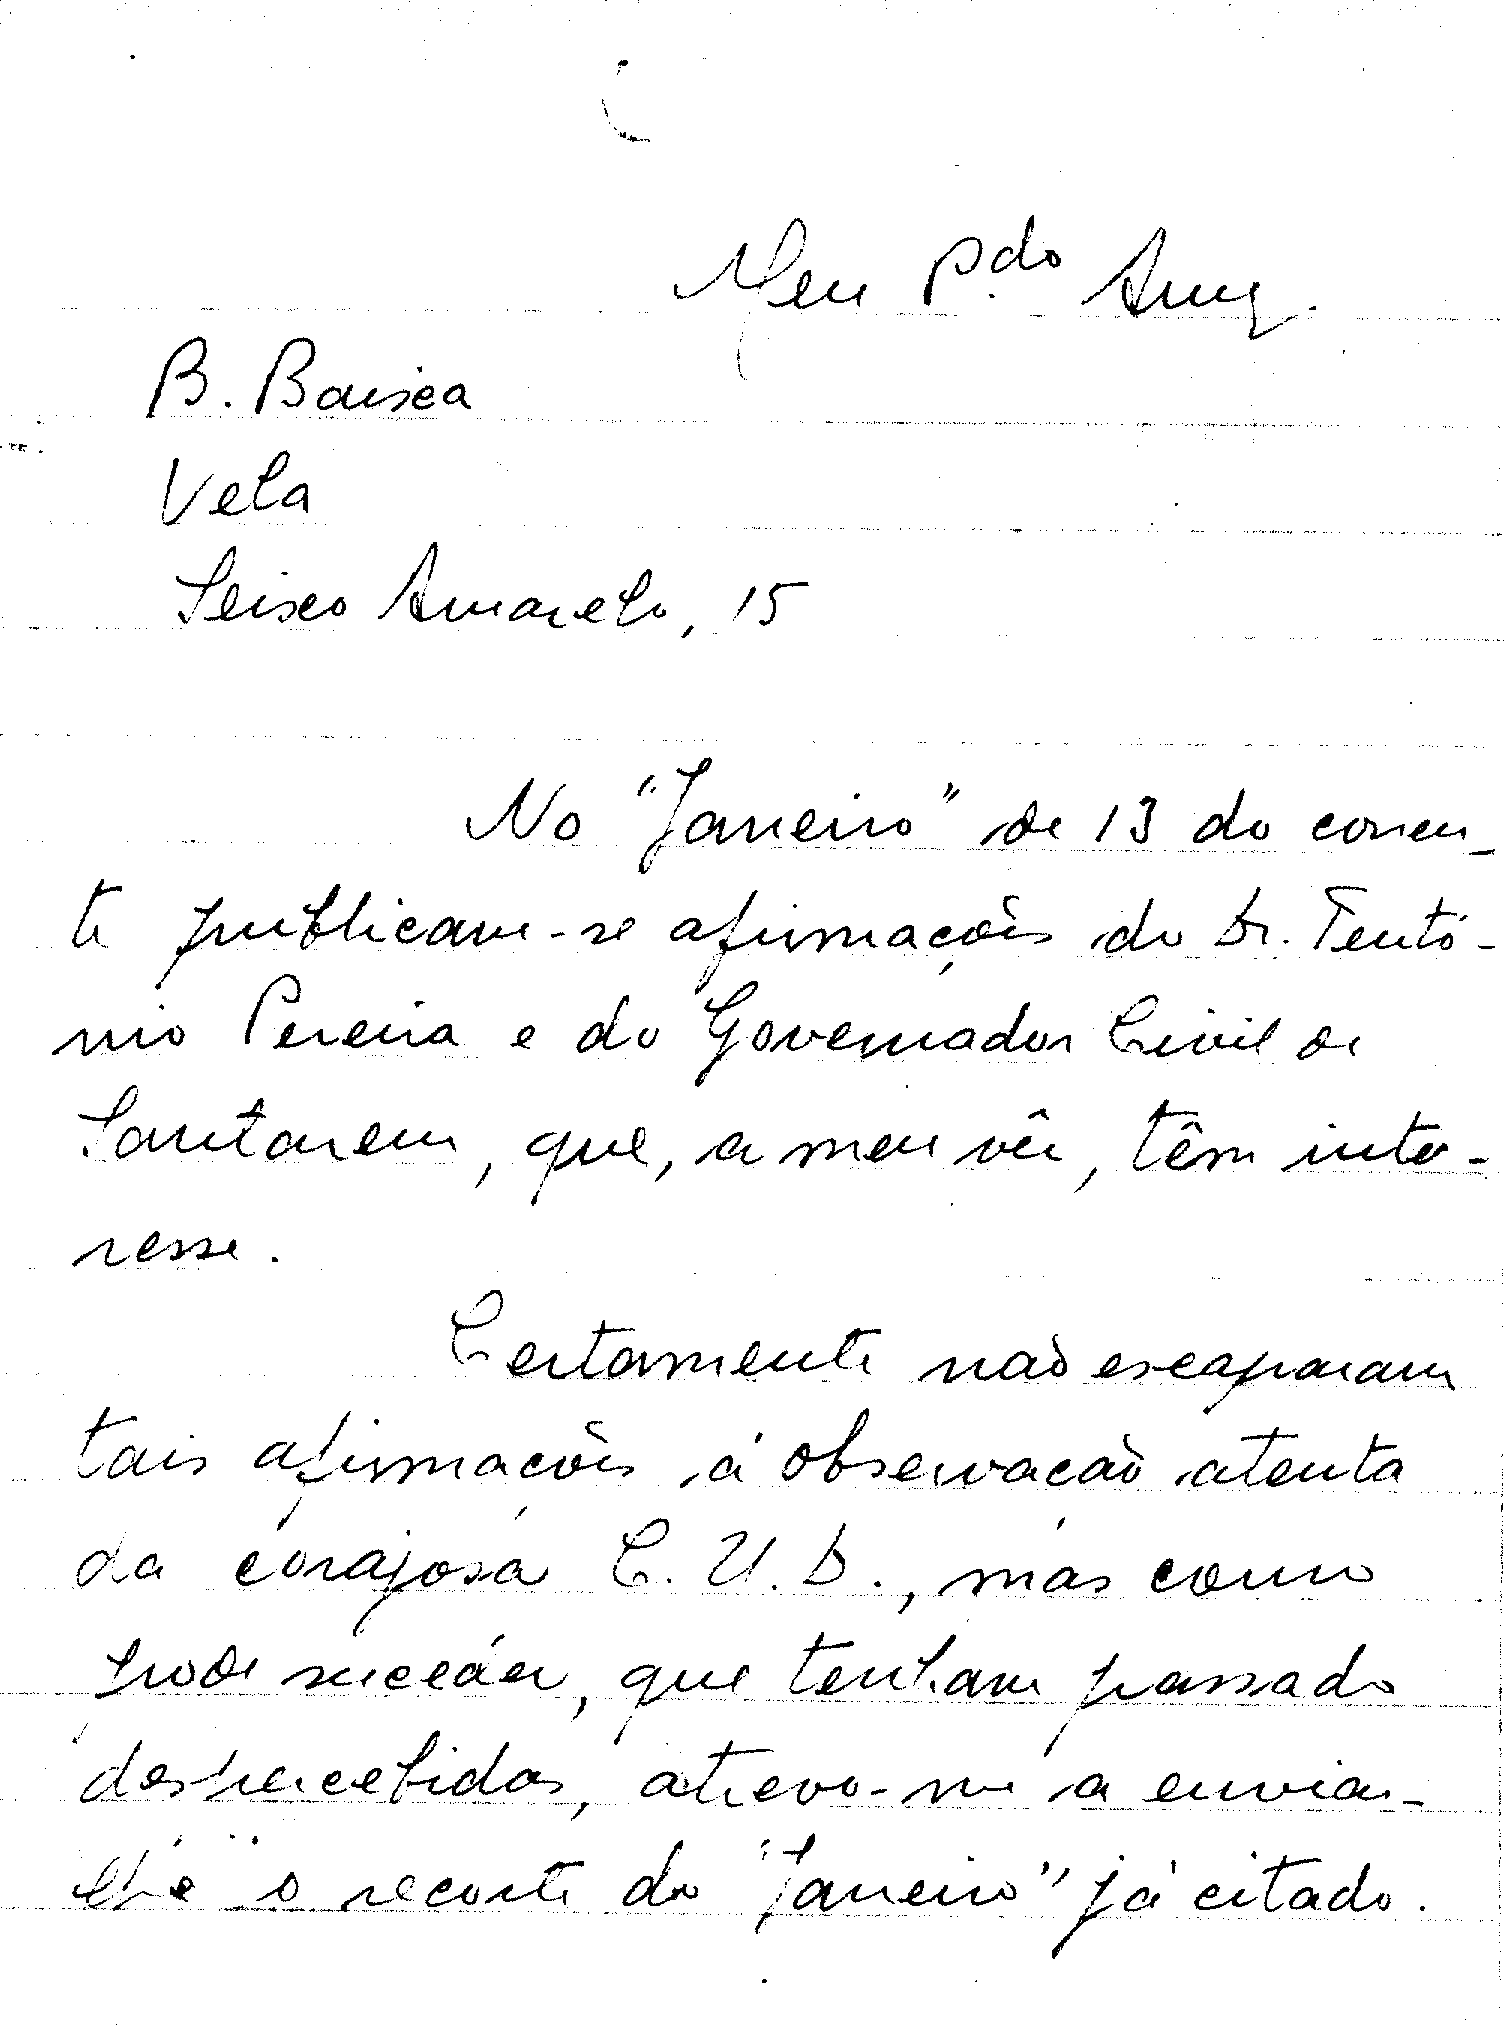 Meu P.do Amg.
B. Baixa
Vela
Seixo Amarelo, 15
No "Janeiro" de 13 do corren-
te publicam-se afirmações do Dr. Teutó-
nio Pereira e do Governador Civil de
Santarem, que, a meu vêr, têm inte-
resse.
Certamente não escaparam
tais afirmações á observação atenta
da corajosa C. U. D., mas como
pode suceder, que tenham passado
despercebidas, atrevo-me a enviar-
lhe o recorte do "Janeiro" já citado.